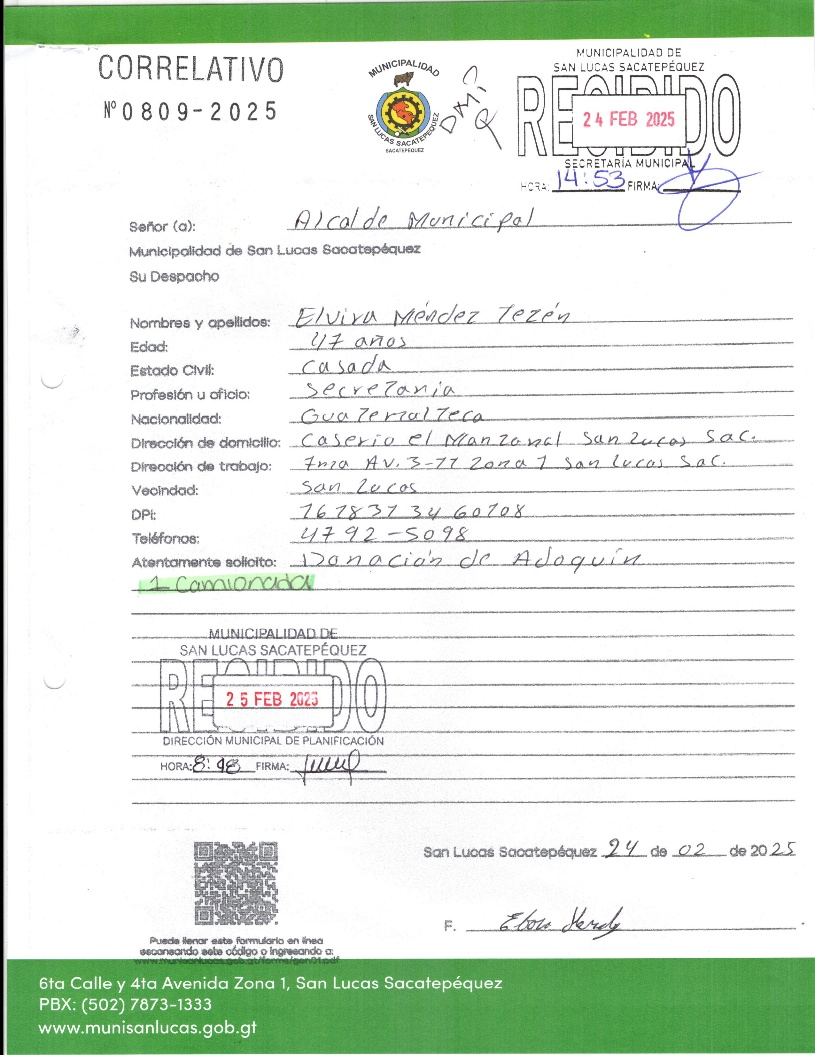 CORRELATIVO
Nº 0809-2025
MUNICIPALIDAD
SAN LUCAS SACATEPÉQUEZ
SACATEPÉQUEZ
DMP
MUNICIPALIDAD DE
SAN LUCAS SACATEPÉQUEZ
RECIBIDO
24 FEB 2025
SECRETARÍA MUNICIPAL
HORA: 14:53 FIRMA:
Señor (a): Alcalde Municipal
Municipalidad de San Lucas Sacatepéquez
Su Despacho
Nombres y apellidos: Elvira Méndez Tezén
Edad: 47 años
Estado Civil: Casada
Profesión u oficio: Secretaria
Nacionalidad: Guatemalteca
Dirección de domicilio: Caserio el Manzanal San Lucas Sac.
Dirección de trabajo: 7ma Av. 3-11 Zona 1 San Lucas Sac.
Vecindad: San Lucas
DPI: 1678313460108
Teléfonos: 4792-5098
Atentamente solicito: Donación de Adoquín
1 Camionada
MUNICIPALIDAD DE
SAN LUCAS SACATEPÉQUEZ
RECIBIDO
25 FEB 2025
DIRECCIÓN MUNICIPAL DE PLANIFICACIÓN
HORA: 8:48 FIRMA:
San Lucas Sacatepéquez 24 de 02 de 2025
F.
Puede llenar este formulario en línea
escaneando este código o ingresando a:
6ta Calle y 4ta Avenida Zona 1, San Lucas Sacatepéquez
PBX: (502) 7873-1333
www.munisanlucas.gob.gt